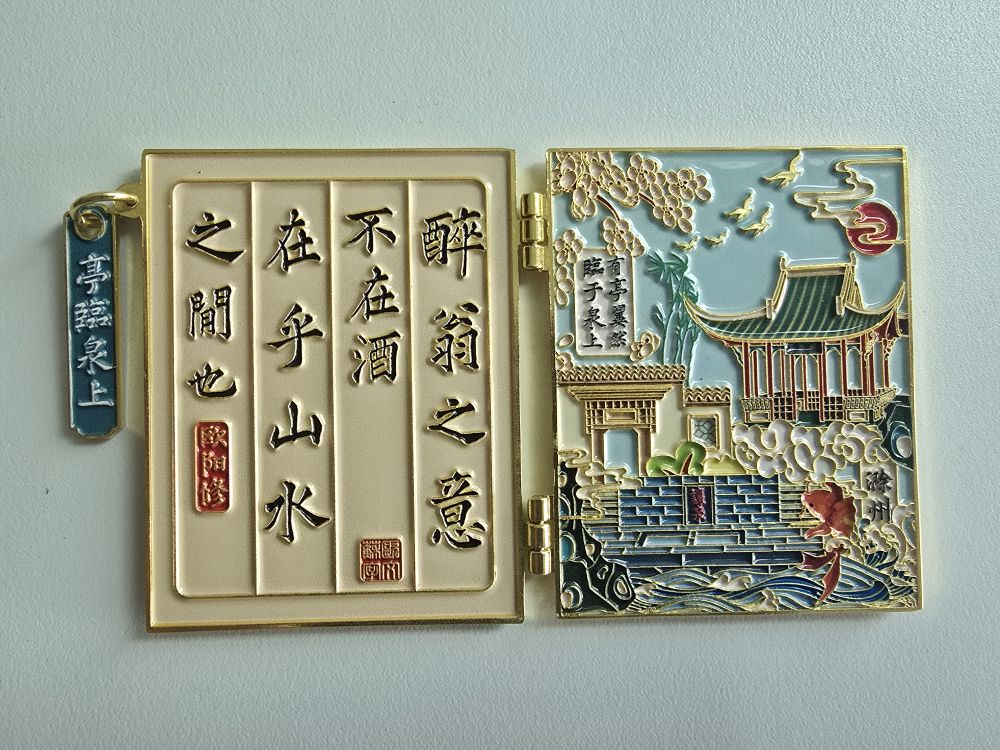 醉翁之意
不在酒
在乎山水
之閒也
欧阳修
亭臨泉上
有亭翼然
臨于泉上
滁州